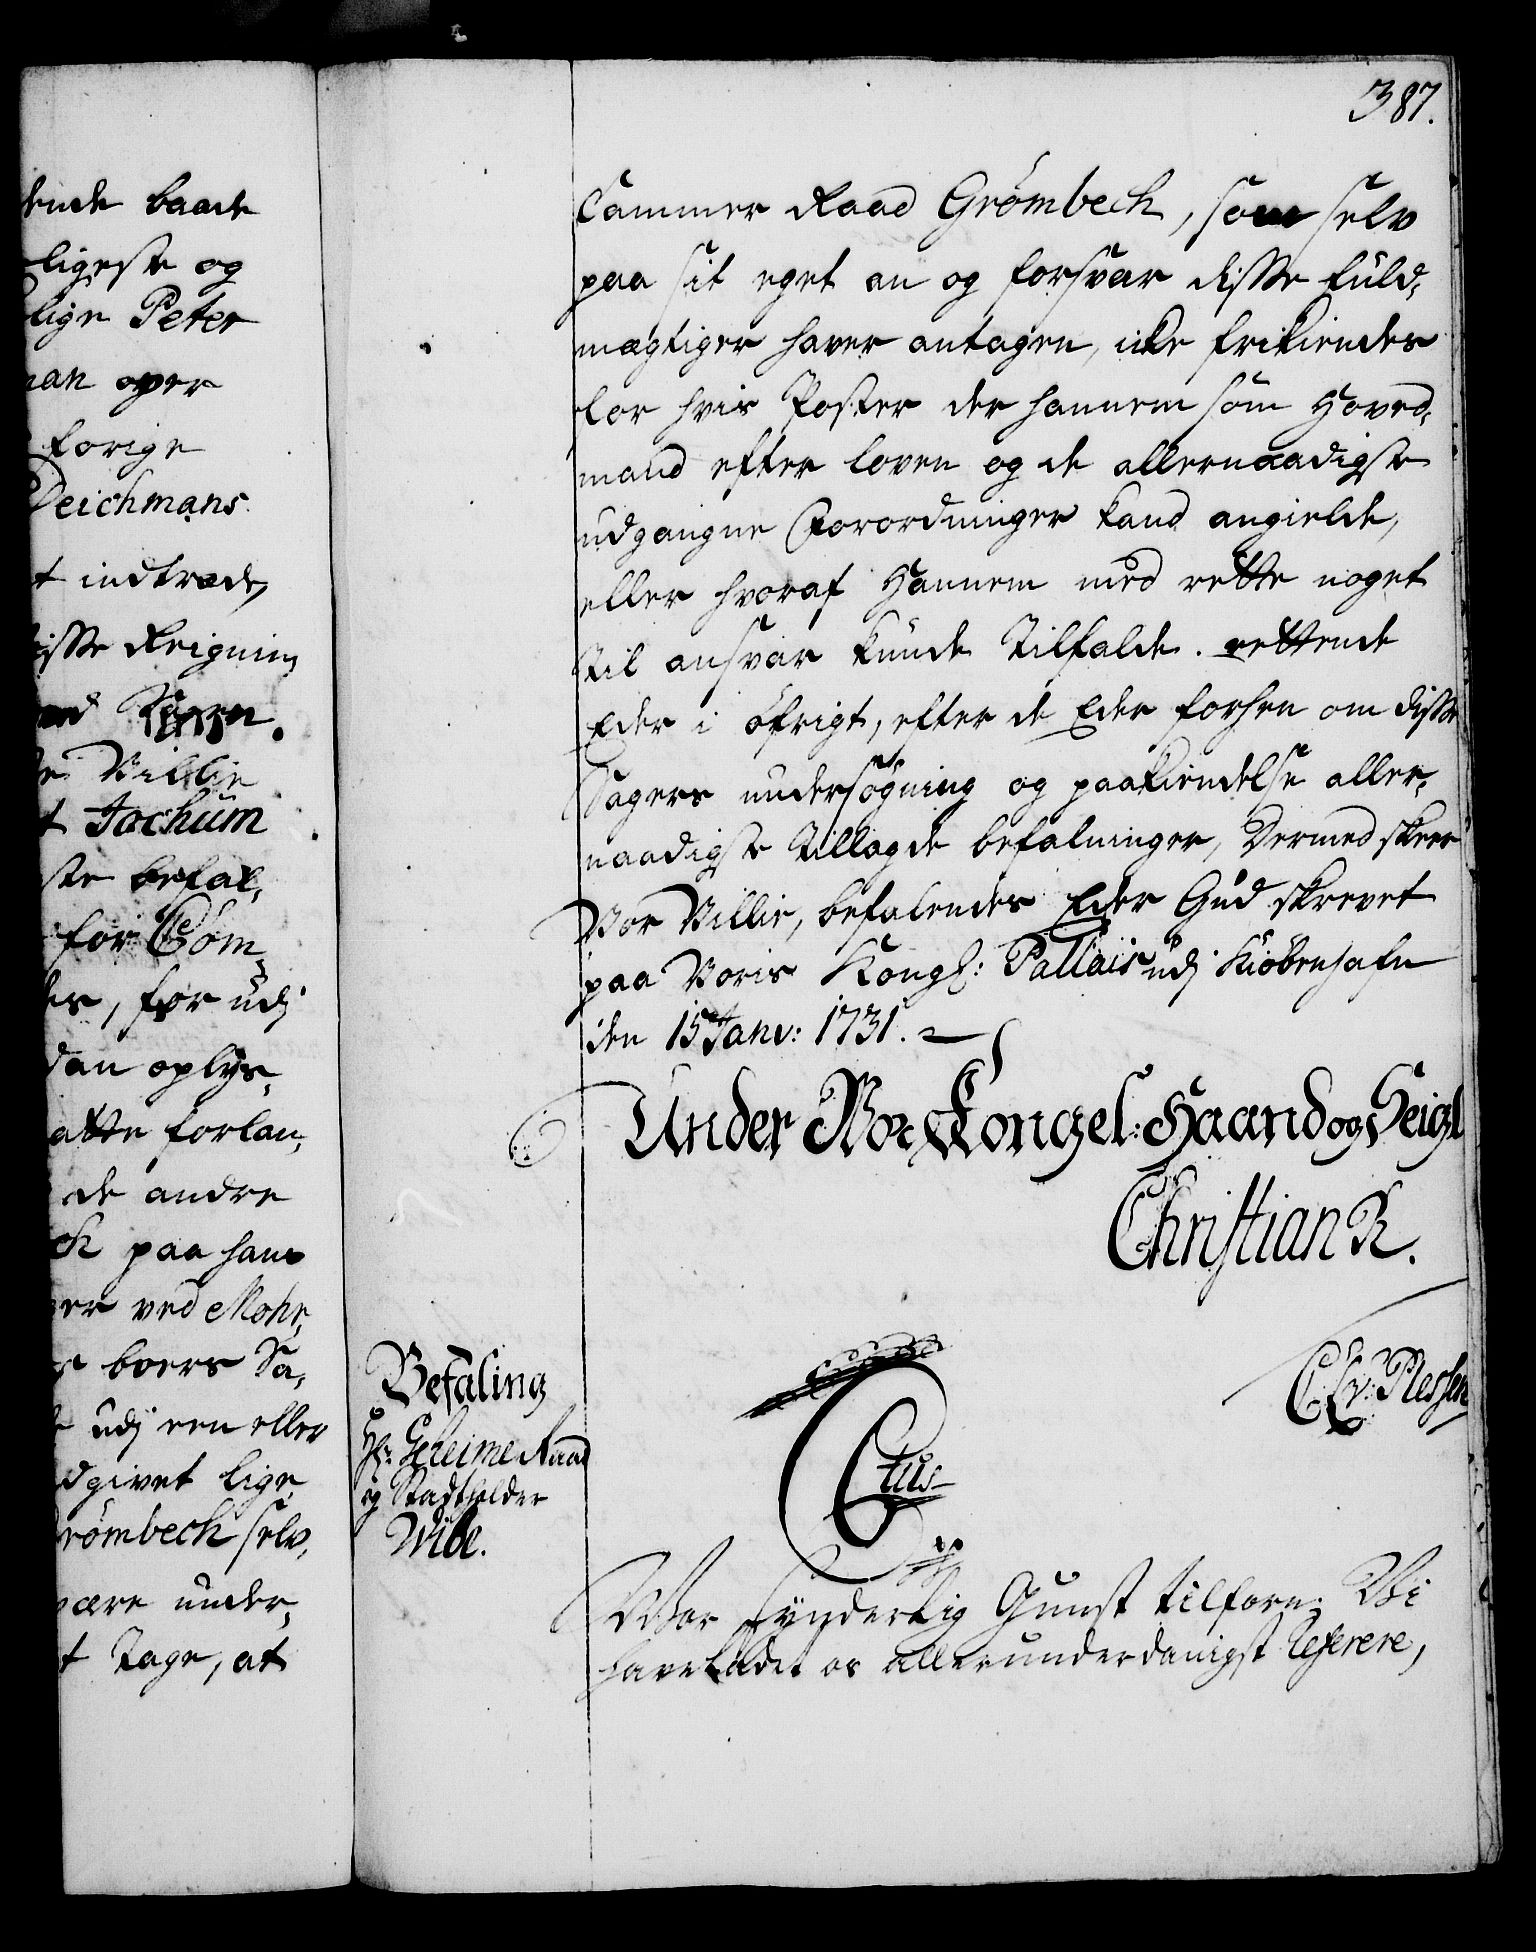 387.
dende baade
ligeste og
lige Peter
man over
forige
Deichmans
t indtræde,
disse Reigning
Villie
t Jochum
ste befal,
for Com,
des, for udj
dan oplys,
atte forlan,
de andre
ch paa hans
ger ved Mohr,
boers Sa,
udj een eller
dgivet lige,
Grömbech selv,
være under,
t tage, at
Cammer Raad Grömbech, som selv
paa sit eget an og forsvar disse fuld,
mægtiger haver antagen, icke frikiendes
for hvis Poster der hannem som Hoved,
mand efter loven og de allernaadigste
udgangne Forordninger kand angielde,
eller hvoraf Hannem med rette noget
til ansvar kunde tilfalde. rettende
Eder i öfrigt, efter de Eder forhen om disse
Sagers undersögning og paakiendelse aller,
naadigste tillagde befalninger, Dermed skeer
Vor Villie, befalendes Eder Gud skrevet
paa Voris Kongl: Pallais udj Kiöbenhafn
den 15 Janv: 1731.
Under Vor Kongel: Haand og Seigl
Christian R.
C A v: Plessen
Befaling
Hr: Geheime Raad
og Stadtholder
Wibe.
C6tus
Vor synderlig Gunst tilforn; Vi
have ladet os allerunderdanigst referere,